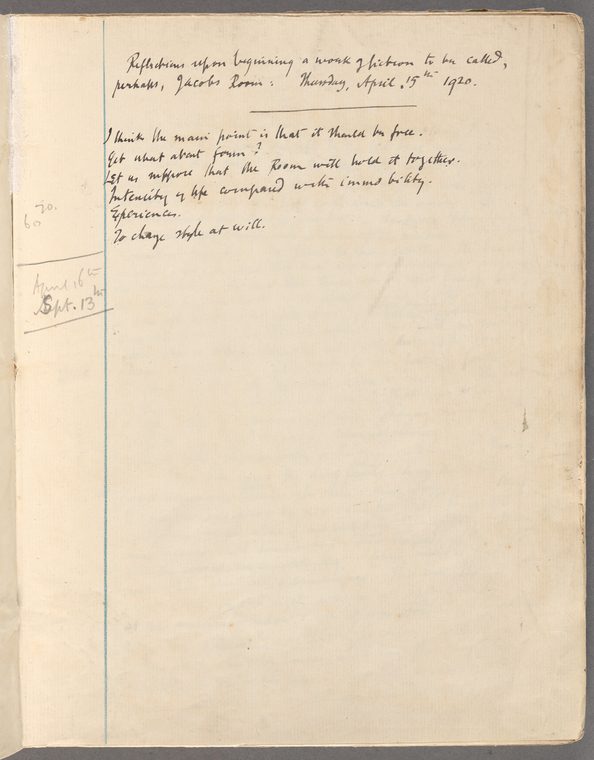 Reflections upon beginning a work of fiction to be called,
perhaps, Jacobs Room: Thursday, April 15th 1920.
I think the main point is that it should be free.
Yet what about form?
Let us suppose that the Room will hold it together.
Intensity of life compared with immobility.
Experiences.
To change style at will.
70.
60
April 16th
Sept. 13th